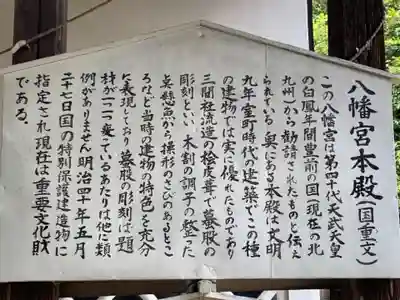 八幡宮本殿(国重文)
この八幡宮は第四十代天武天皇
の白鳳年間豊前の国(現在の北
九州)から勧請されたものと伝え
られている 奥にある本殿は文明
九年室町時代の建築でこの種
の建物では実に優れたものであり
三間社流造の桧皮葺で蟇股の
彫刻といい木割の調子の整った
美 懸魚から 形のさびのあるとこ
ろなど当時の建物の特色を充分
に表現しており蟇股の彫刻は題
材が一つ一つ変っているあたりは他に類
例がありません明治四十年五月
二十七日国の特別保護建造物に
指定され現在は重要文化財
である。